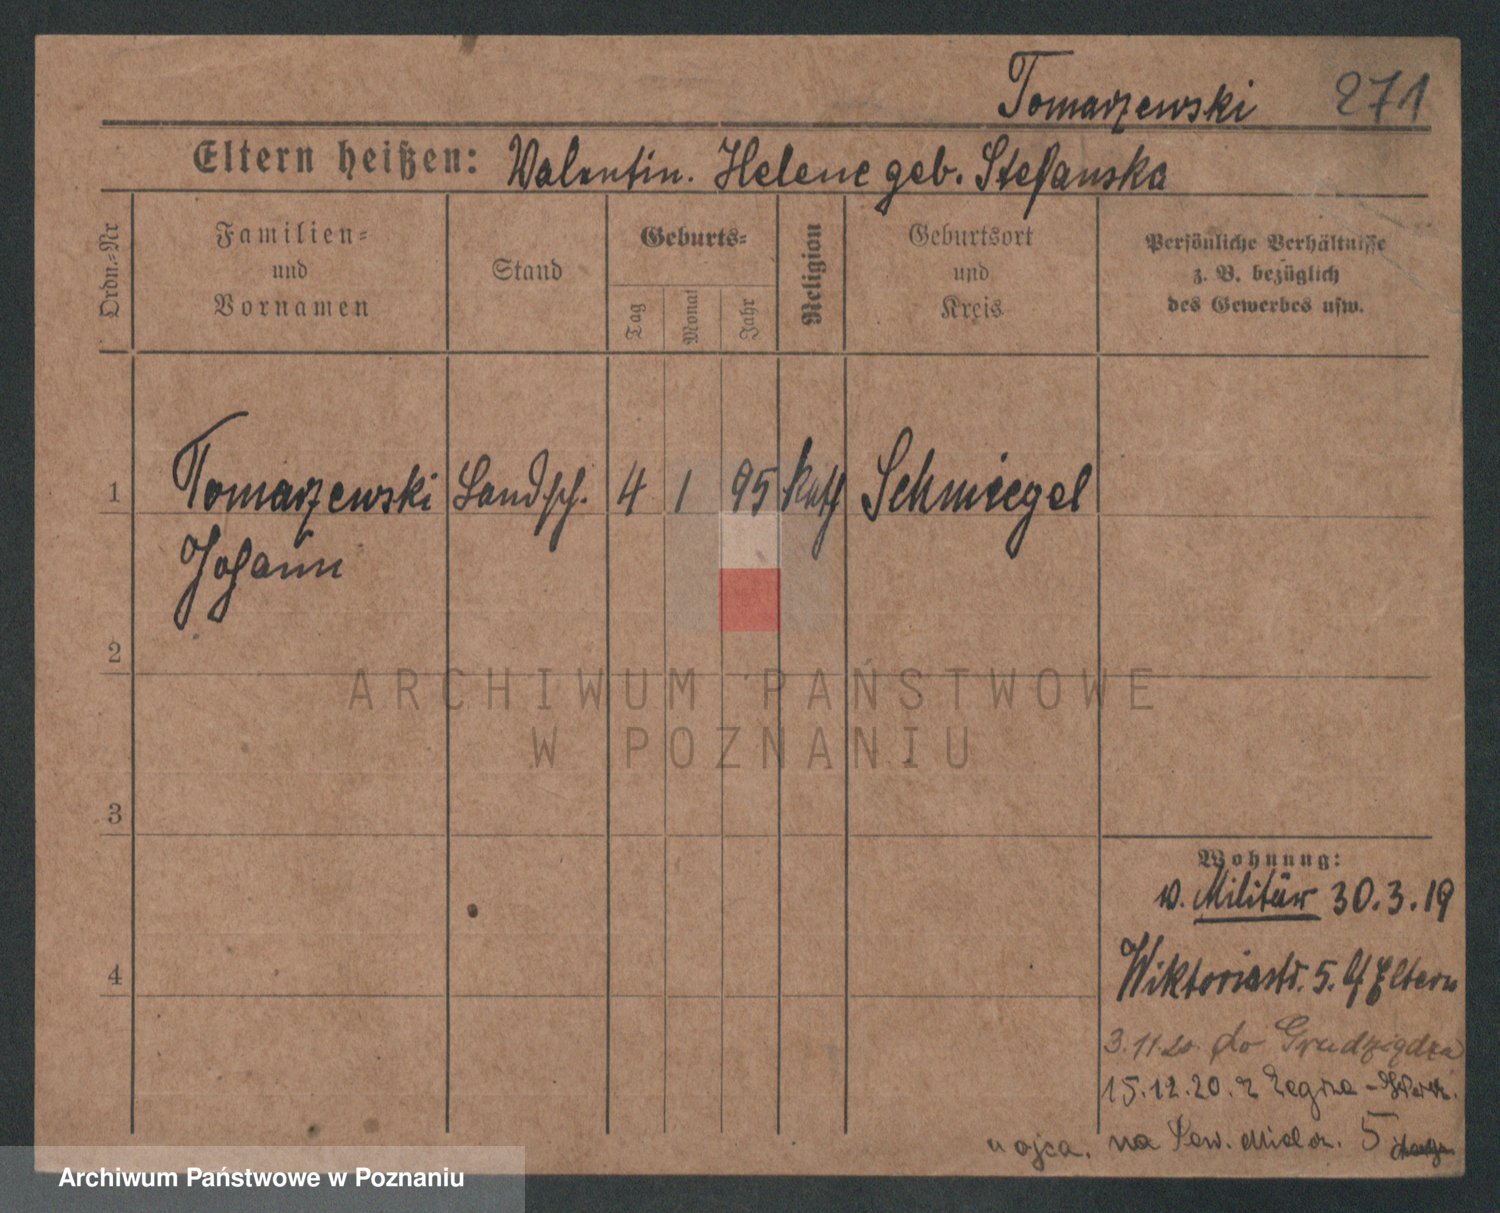 Tomarzewski 271
Eltern heißen: Valentin. Helene geb. Stefanska
Ordn.-Nr
Familien-
und
Vornamen
Stand
Geburts-
Tag
Monat
Jahr
Religion
Geburtsort
und
Kreis
Persönliche Verhältnisse
z. B. bezüglich
des Gewerbes usw.
1 Tomarzewski Landsch. 4 1 95 kath Schmiegel
Johann
2
ARCHIWUM PAŃSTWOWE
W POZNANIU
3
Wohnung:
v. Militär 30.3.19
4 Wiktoriastr. 5. Eltern
3.11.20 do Grudziądza
15.12.20. z Zegrza
u ojca. na 5
Archiwum Państwowe w Poznaniu